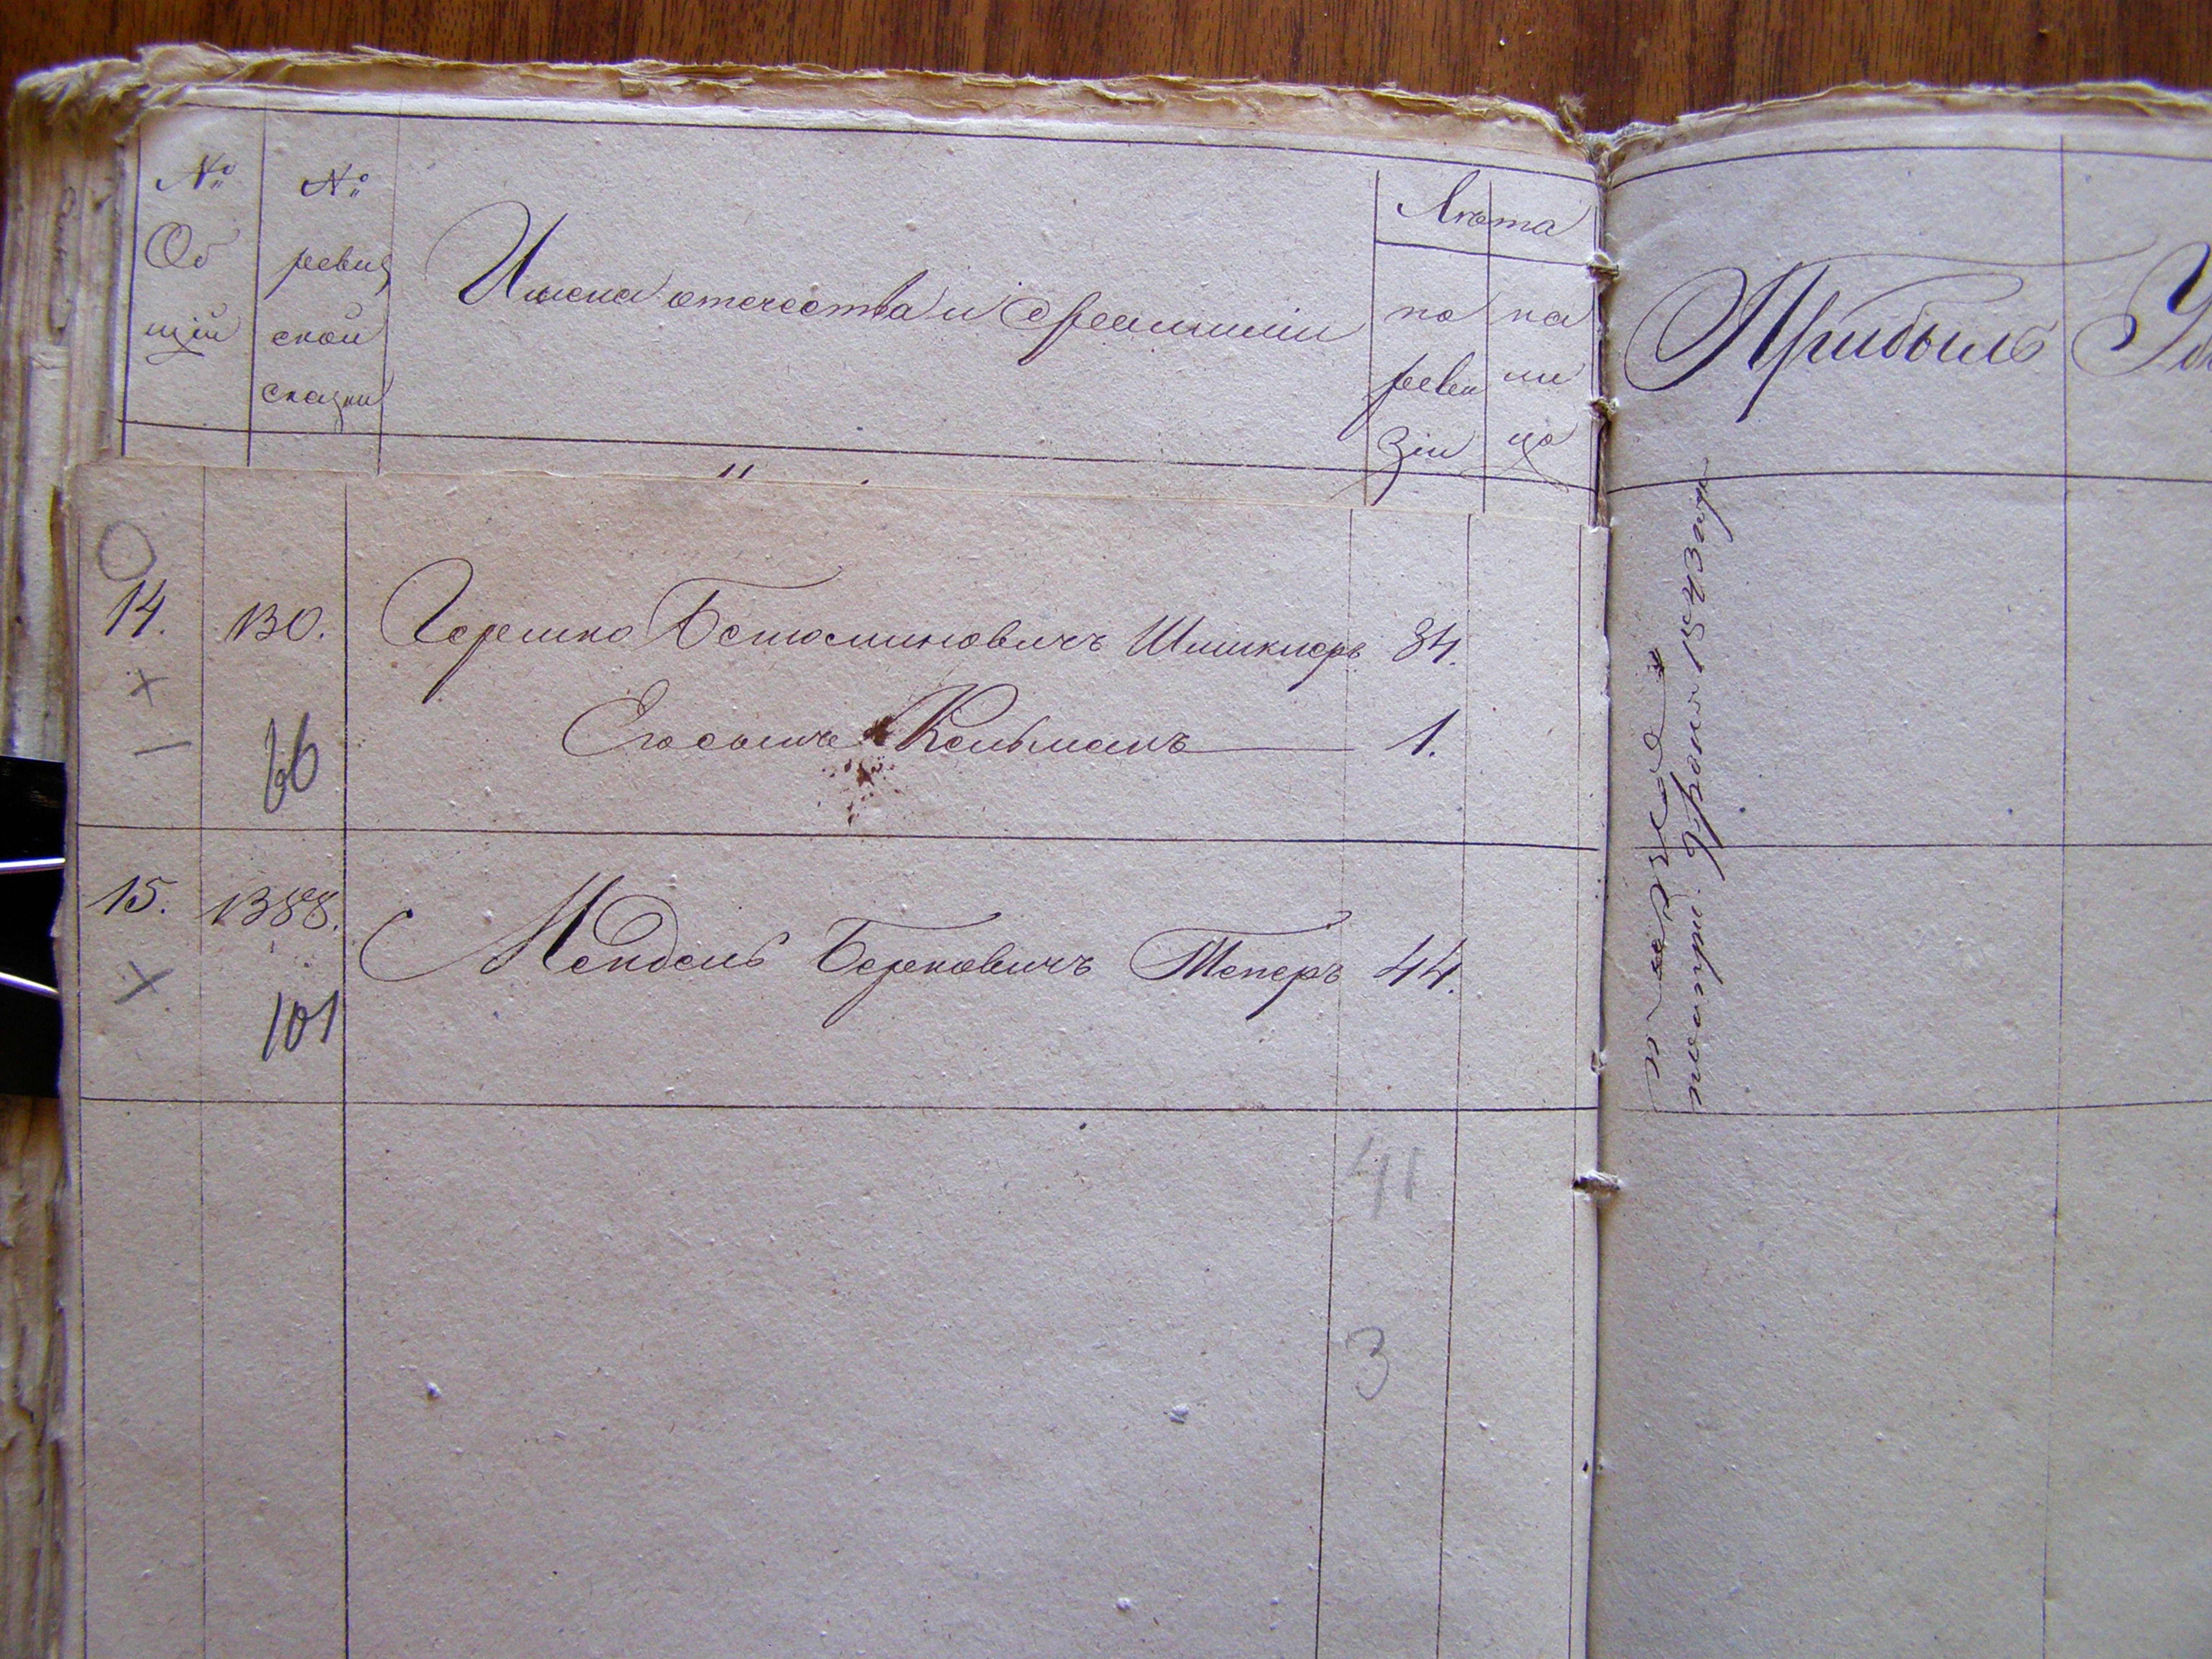 № Общій
№ ревизской сказки
Имена отчества и фамиліи
Лѣта
по ревизіи
на лицо
Прибыль
14. 130. Гершко Беніоминовичъ Шпикперъ 34.
Его сынъ Кельманъ 1.
66
15. 1388. Мендель Берковичъ Теперъ 44.
101
41
3
1843 года